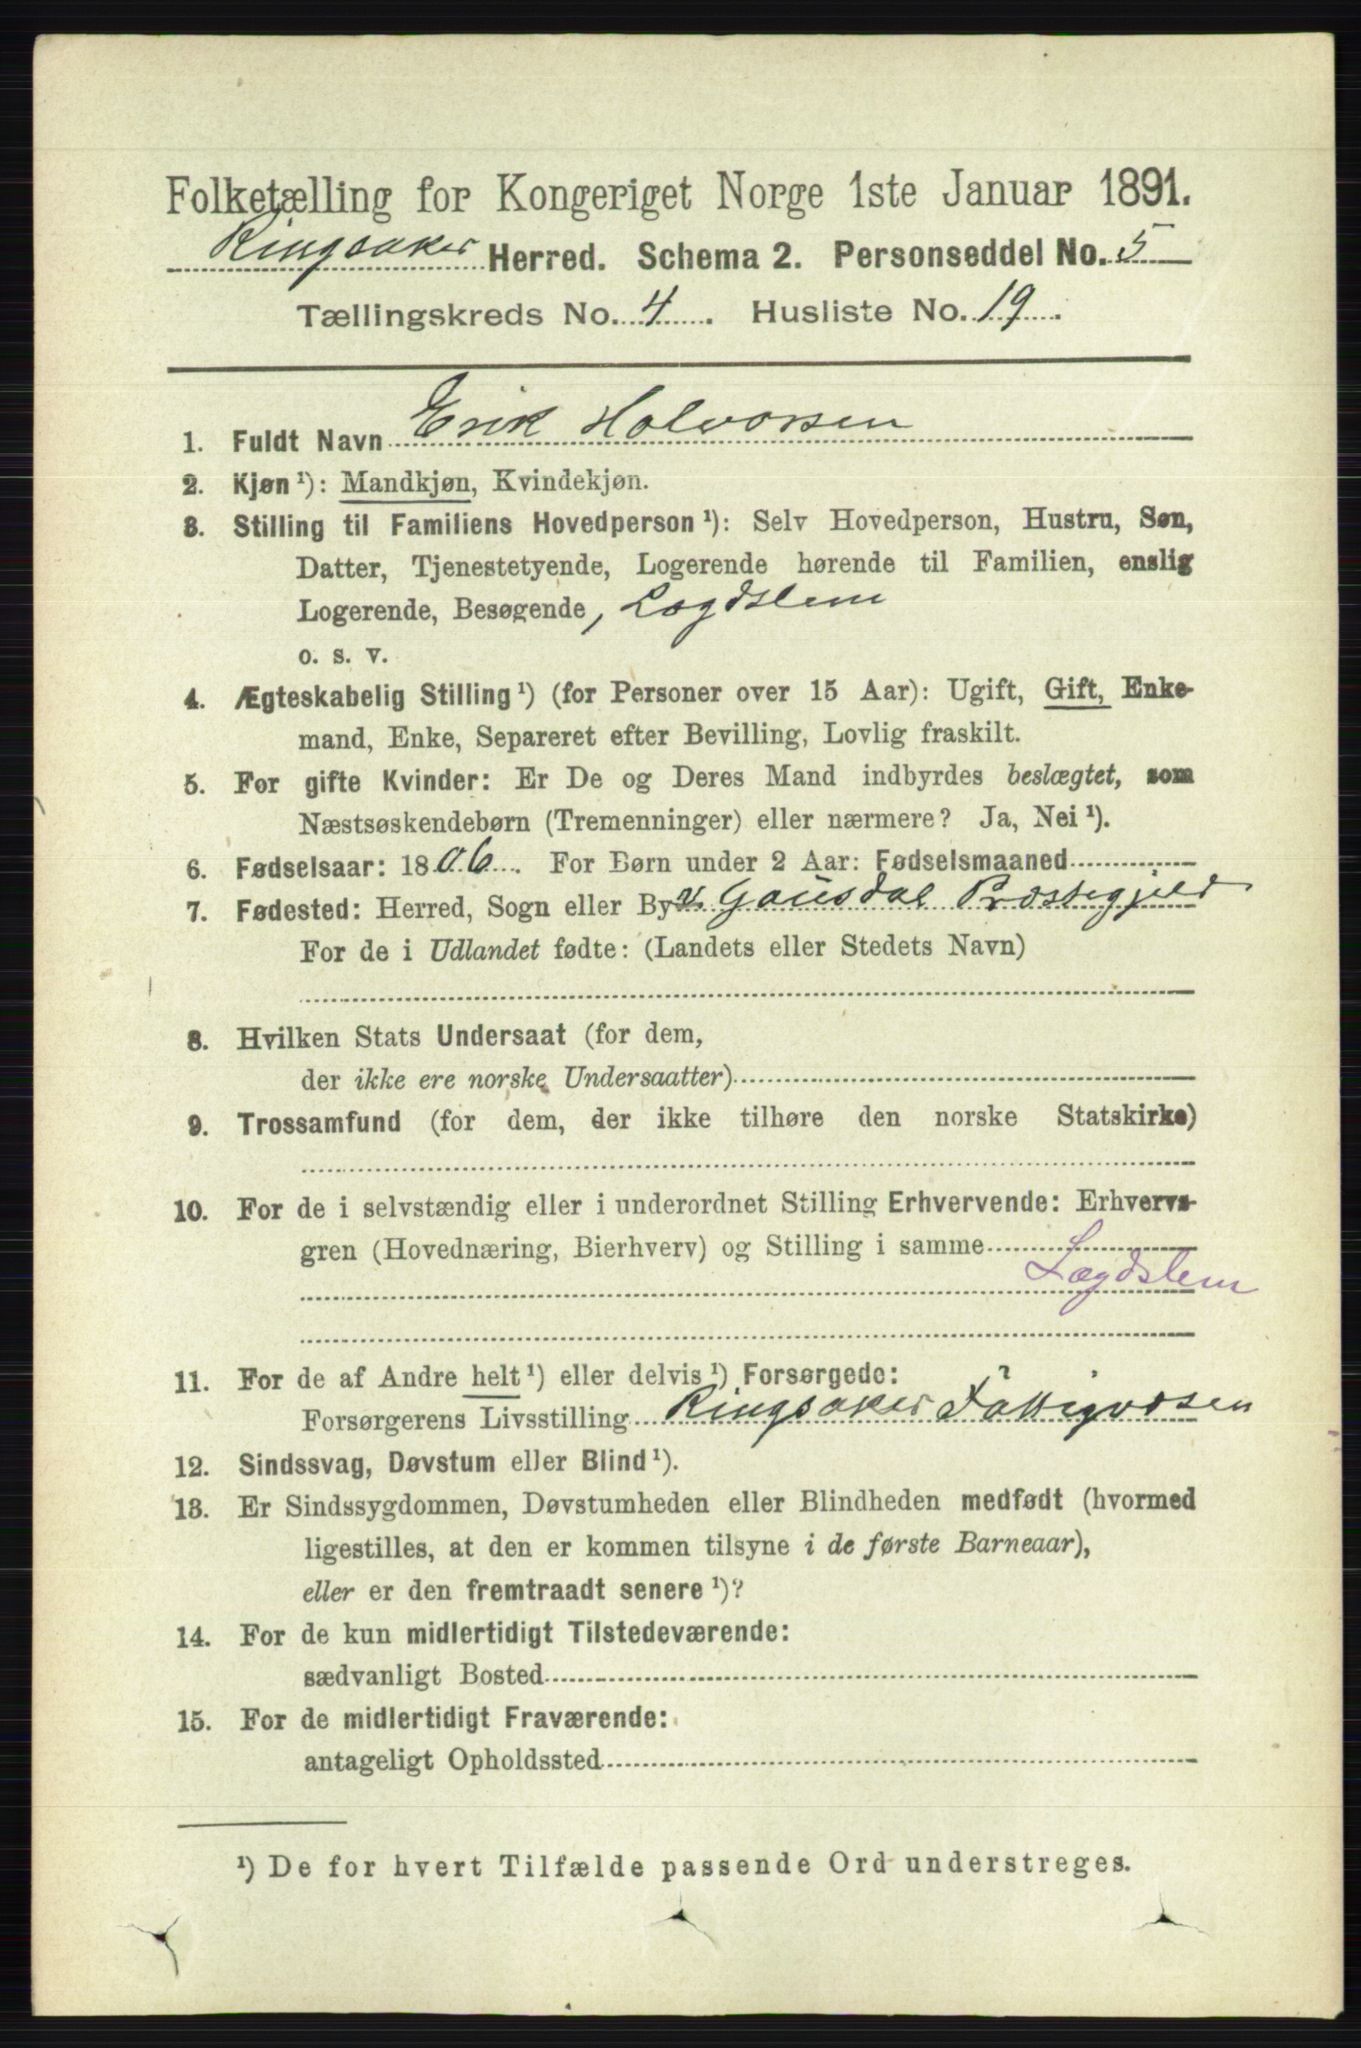 Folketælling for Kongeriget Norge 1ste Januar 1891.
Ringsaker Herred. Schema 2. Personseddel No. 5
Tællingskreds No. 4. Husliste No. 19.
1. Fuldt Navn Erik Halvorsen
2. Kjøn ¹): Mandkjøn, Kvindekjøn.
3. Stilling til Familiens Hovedperson ¹): Selv Hovedperson, Hustru, Søn,
Datter, Tjenestetyende, Logerende hørende til Familien, enslig
Logerende, Besøgende, Lægdslem
o. s. v.
4. Ægteskabelig Stilling ¹) (for Personer over 15 Aar): Ugift, Gift, Enke-
mand, Enke, Separeret efter Bevilling, Lovlig fraskilt.
5. For gifte Kvinder: Er De og Deres Mand indbyrdes beslægtet, som
Næstsøskendebørn (Tremenninger) eller nærmere? Ja, Nei ¹).
6. Fødselsaar: 1806. For Børn under 2 Aar: Fødselsmaaned
7. Fødested: Herred, Sogn eller By Gausdal Præstegjeld
For de i Udlandet fødte: (Landets eller Stedets Navn)
8. Hvilken Stats Undersaat (for dem,
der ikke ere norske Undersaatter)
9. Trossamfund (for dem, der ikke tilhøre den norske Statskirke)
10. For de i selvstændig eller i underordnet Stilling Erhvervende: Erhvervs-
gren (Hovednæring, Bierhverv) og Stilling i samme
Lægdslem
11. For de af Andre helt ¹) eller delvis ¹) Forsørgede:
Forsørgerens Livsstilling Ringsaker Fattigvæsen
12. Sindssvag, Døvstum eller Blind ¹).
13. Er Sindssygdommen, Døvstumheden eller Blindheden medfødt (hvormed
ligestilles, at den er kommen tilsyne i de første Barneaar),
eller er den fremtraadt senere ¹)?
14. For de kun midlertidigt Tilstedeværende:
sædvanligt Bosted
15. For de midlertidigt Fraværende:
antageligt Opholdssted
¹) De for hvert Tilfælde passende Ord understreges.